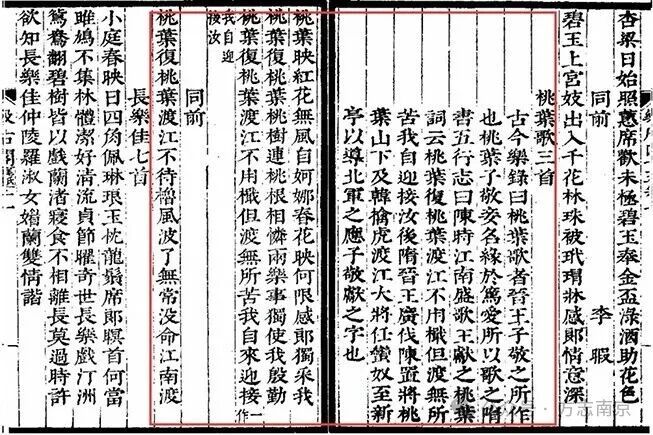 杏梁日始照蕙席歡未極碧玉奉金盃淥酒助花色
同前　李暇
碧玉上宮妓出入千花林珠被玳瑁牀感郞情意深
桃葉歌三首
古今樂錄曰桃葉歌者晉王子敬之所作
也桃葉子敬妾名緣於篤愛所以歌之隋
書五行志曰陳時江南盛歌王獻之桃葉
詞云桃葉復桃葉渡江不用檝但渡無所
苦我自迎接汝後隋晉王廣伐陳置將桃
葉山下及韓擒虎渡江大將任蠻奴至新
亭以導北軍之應子敬獻之字也
桃葉映紅花無風自婀娜春花映何限感郞獨采我
桃葉復桃葉桃樹連桃根相憐兩樂事獨使我殷勤
桃葉復桃葉渡江不用檝但渡無所苦我自來迎接一作
我自迎
接汝
同前
桃葉復桃葉渡江不待櫓風波了無常沒命江南渡
長樂佳七首
小庭春映日四角佩琳琅玉枕龍鬚席郞瞑首何當
雎鳩不集林體潔好清流貞節曜奇世長樂戲汀洲
鴛鴦翻碧樹皆以戲蘭渚寢食不相離長莫過時許
欲知長樂佳仲陵羅淑女媚蘭雙情諧
汲古閣
方志南京